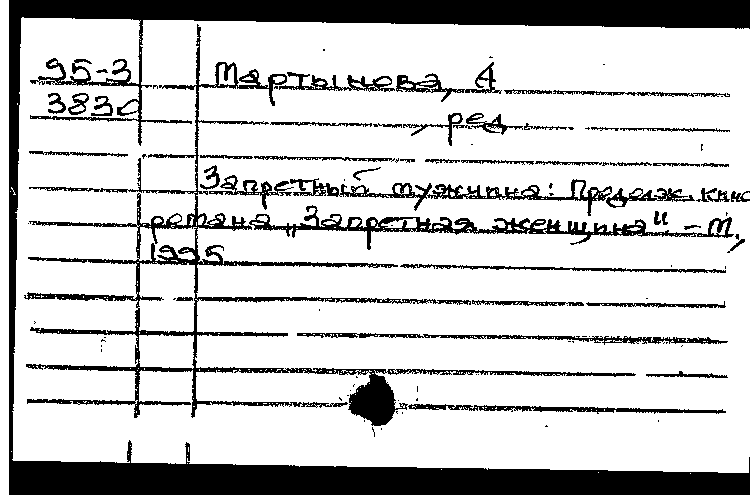 95-3 Мартынова, А
3830 , ред.
Запретный мужчина: Продолж. кино
романа „Запретная женщина" - М.,
1995